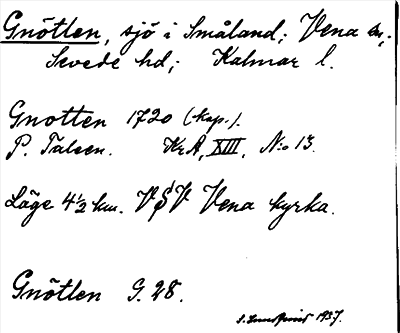 Gnötlen, sjö i Småland; Vena sn,;
Sevede hd; Kalmar l.
Gnotten 1720 (kop.).
P. Talsen. KrA, XIII, N:o 13.
Läge 4½ km. VSV Vena kyrka.
Gnötlen G. 28.
1937.